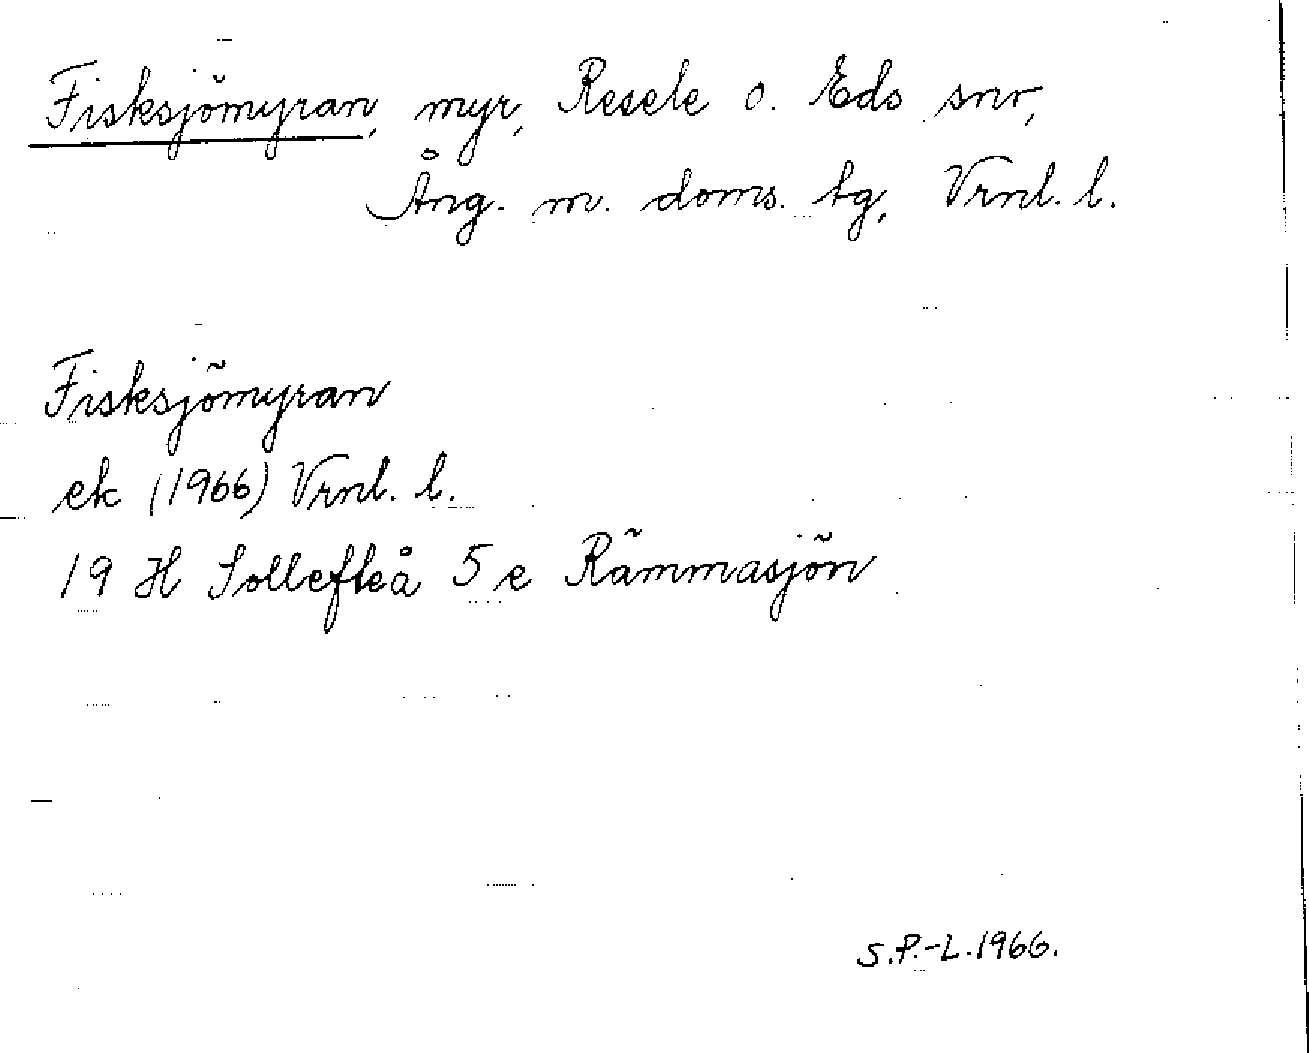 Fisksjömyran, myr, Resele o. Eds snr,
Ång. m. doms. tg, Vrnl. l.
Fisksjömyran
ek (1966) Vrnl. l.
19 H Sollefteå 5 e Rämmasjön
S.P.-L.1966.